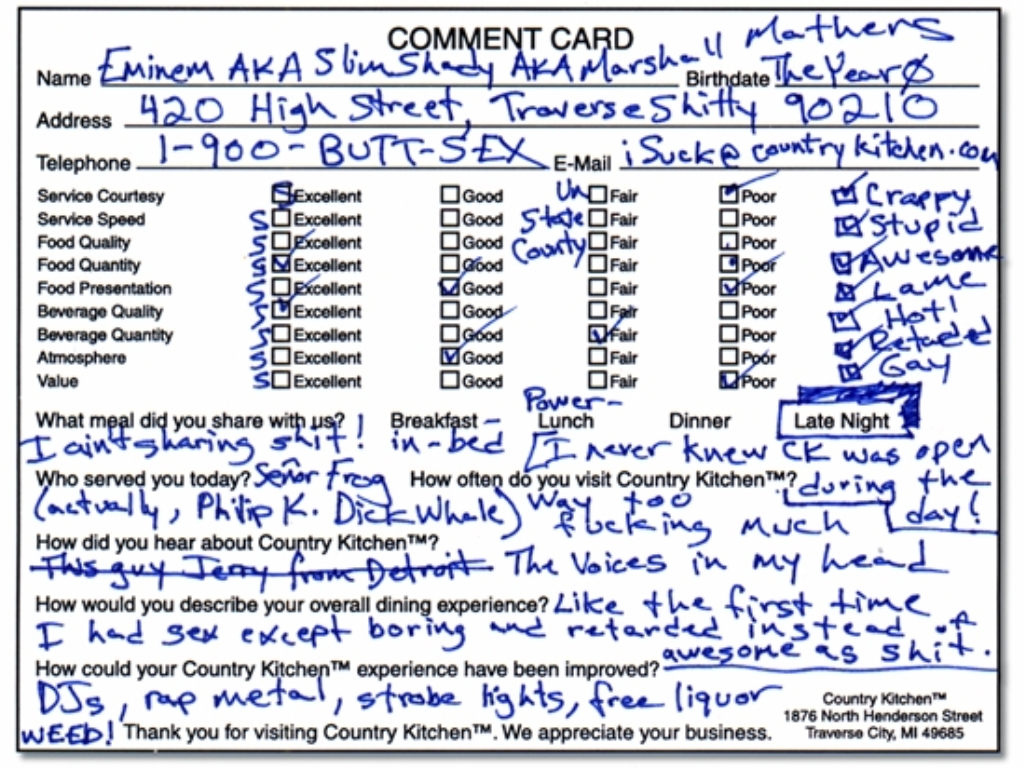 COMMENT CARD
Name Eminem AKA Slim Shady AKA Marshall Mathers Birthdate The Year Ø
Address 420 High Street, Traverse Shitty 90210
Telephone 1-900-BUTT-SEX E-Mail iSuck@countrykitchen.com
Service Courtesy S Excellent Good Un Fair Poor Crappy
Service Speed S Excellent Good State Fair Poor Stupid
Food Quality S Excellent Good County Fair Poor
Food Quantity S Excellent Good Fair Poor Awesome
Food Presentation S Excellent Good Fair Poor Lame
Beverage Quality S Excellent Good Fair Poor Hot!
Beverage Quantity S Excellent Good Fair Poor Retarded
Atmosphere S Excellent Good Fair Poor Gay
Value S Excellent Good Fair Poor
What meal did you share with us? Breakfast - Power- Lunch Dinner Late Night
I ain't sharing shit! in-bed [I never knew CK was open
Who served you today? Señor Frog How often do you visit Country Kitchen™? during the
(actually, Philip K. Dick Whale) Way too fucking much day!
How did you hear about Country Kitchen™?
This guy Jerry from Detroit The Voices in my head
How would you describe your overall dining experience? Like the first time
I had sex except boring and retarded instead of
How could your Country Kitchen™ experience have been improved? awesome as shit.
DJs, rap metal, strobe lights, free liquor
WEED! Thank you for visiting Country Kitchen™. We appreciate your business.
Country Kitchen™
1876 North Henderson Street
Traverse City, MI 49685